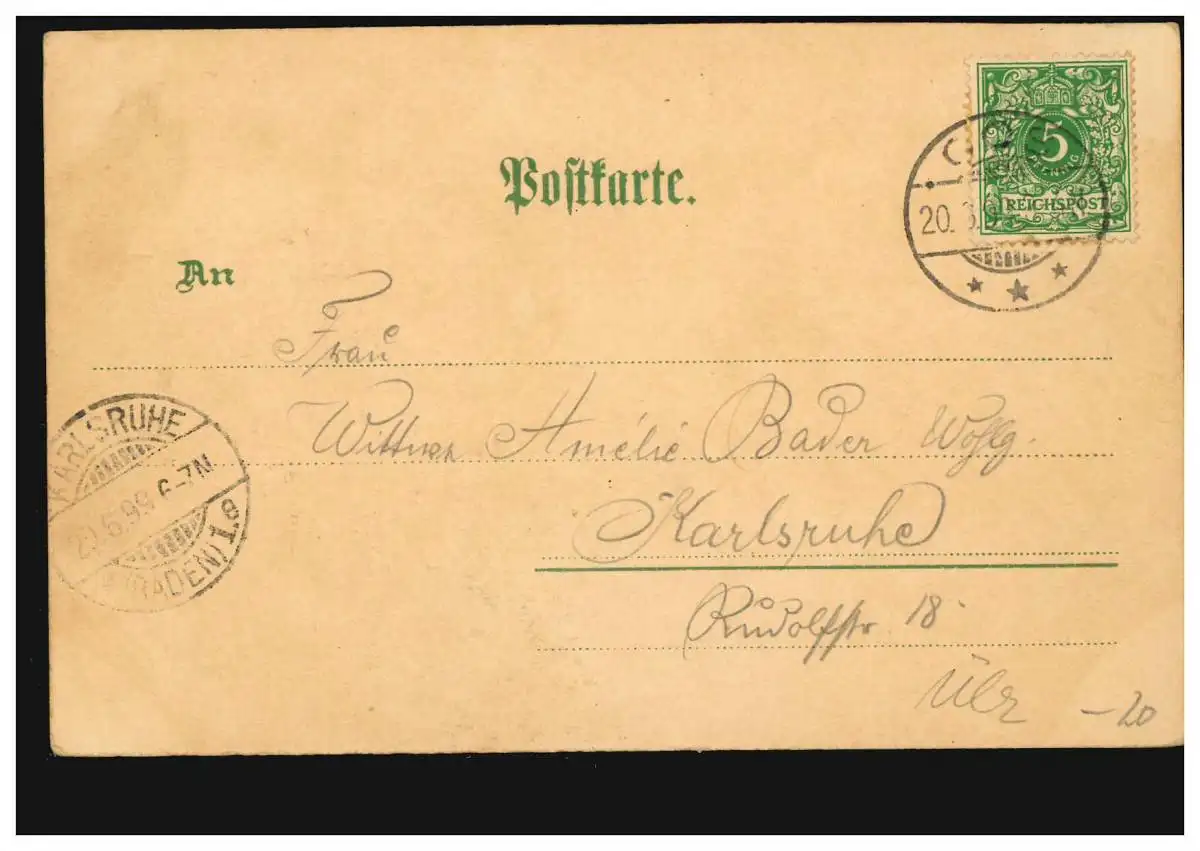 Postkarte.
5
PFENNIG
REICHSPOST
20.
An
Frau
Wittwe Amélie Bader Wohlg.
Karlsruhe
Rudolfstr 18
KARLSRUHE
6.99 6-7N
(BADEN) 1.e
-20